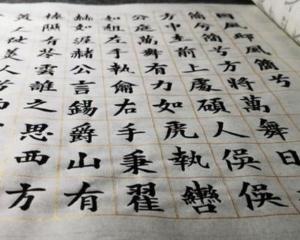 國風邶風簡兮
簡兮方將萬舞日
方中在前上處碩人俁俁
公庭萬舞有力如虎執轡
如左手執籥右手秉翟
赫如渥赭公言錫爵山有
榛隰有苓雲誰之思西方
美人兮